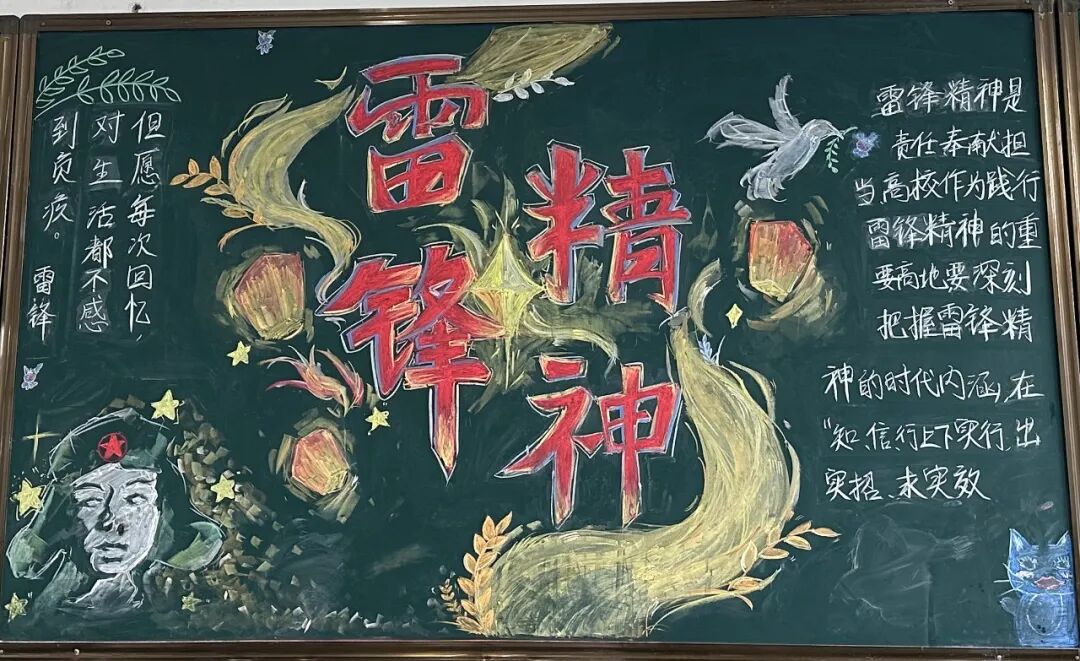 雷锋
精神
但愿每次回忆,
对生活都不感
到负疚。
雷锋
雷锋精神是
责任奉献担
当高校作为践行
雷锋精神的重
要高地要深刻
把握雷锋精
神的时代内涵,在
“知信行上下实行,出
实招、求实效